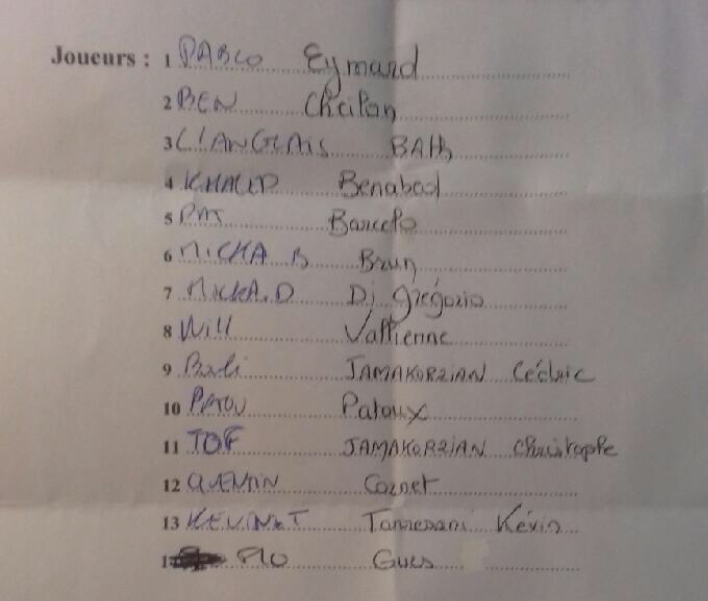 Joueurs : 1 PABLO Eymard
2 BEN Cheilan
3 L'ANGLAIS BATH
4 KHALED Benabed
5 PAT Barcelo
6 MICKA B Brun
7 MICKA.D Di grégorio
8 Will Vallienne
9 Bali JAMAKORZIAN Cédric
10 PATOU Patoux
11 TOF JAMAKORZIAN Christophe
12 QUENTIN Cornet
13 KEVIN.T Kévin
1 PLO Gues